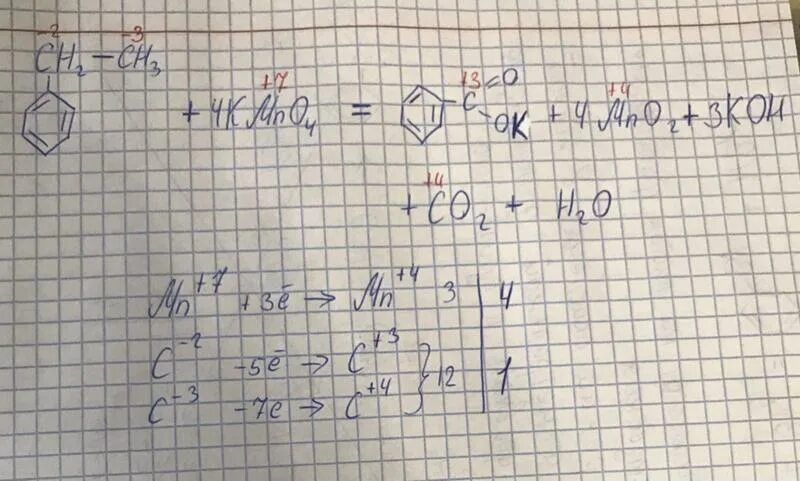 -2 -3
CH₂ – CH₃
+7 +3 +4
+ 4KMnO₄ = C =O -OK + 4MnO₂ + 3KOH
+4
+ CO₂ + H₂O
Mn⁺⁷ +3ē → Mn⁺⁴ 3 | 4
C⁻² -5ē → C⁺³ } 12 | 1
C⁻³ -7e → C⁺⁴